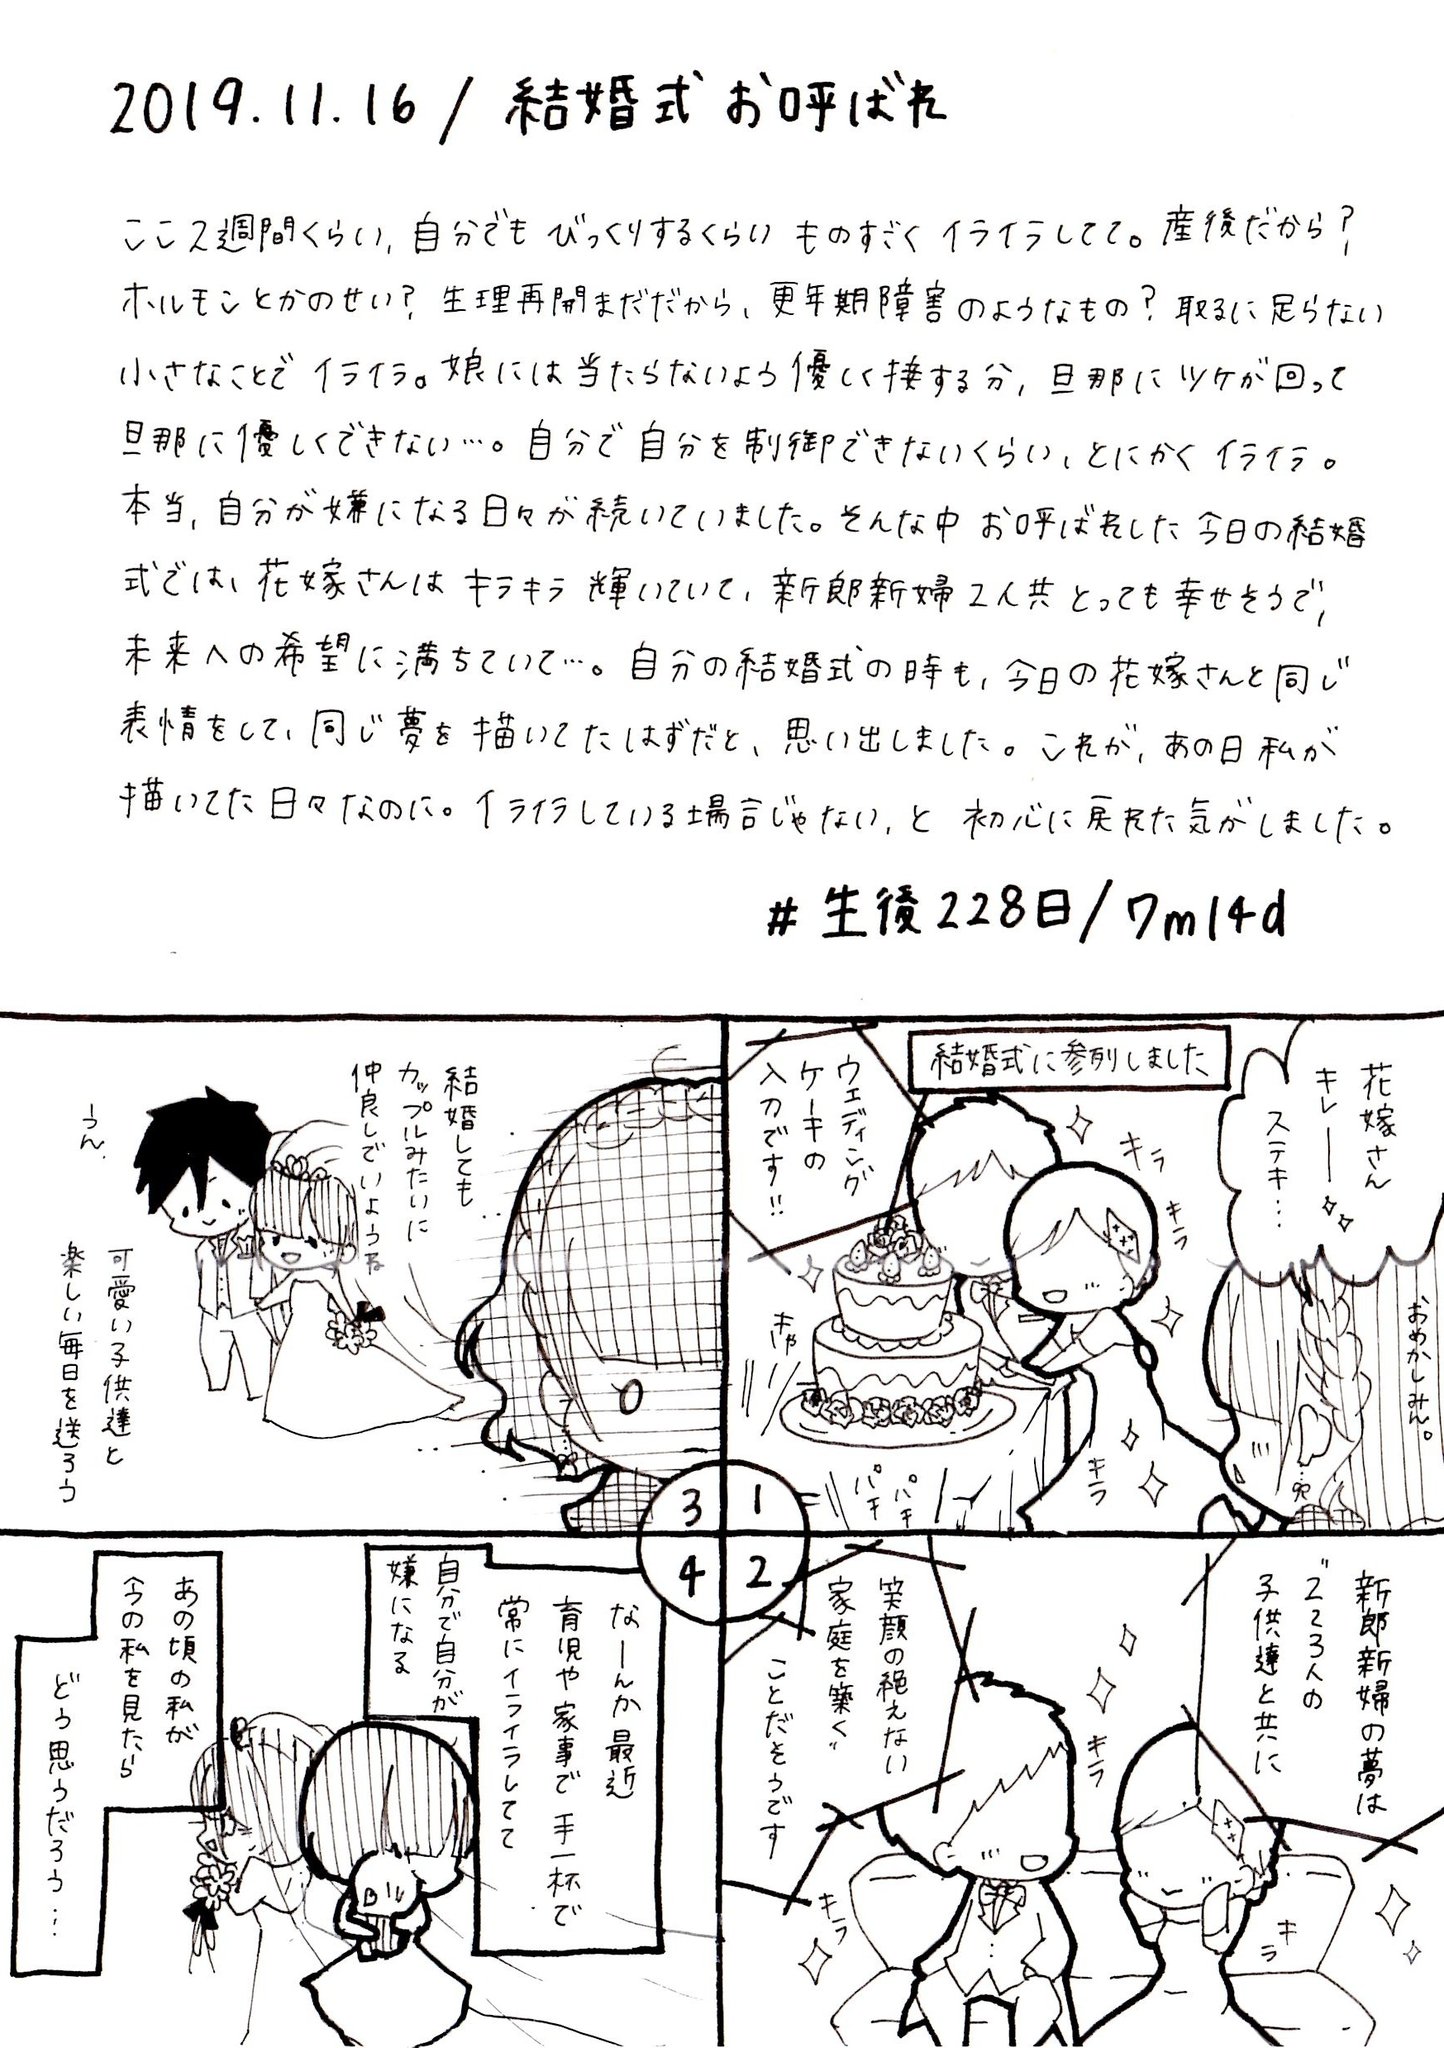 2019.11.16/結婚式お呼ばれ
ここ2週間くらい、自分でもびっくりするくらいものすごくイライラしてて。産後だから?
ホルモンとかのせい?生理再開まだだから、更年期障害のようなもの?取るに足らない
小さなことでイライラ。娘には当たらないよう優しく接する分、旦那にツケが回って
旦那に優しくできない…。自分で自分を制御できないくらい、とにかくイライラ。
本当、自分が嫌になる日々が続いていました。そんな中お呼ばれした今日の結婚
式では、花嫁さんはキラキラ輝いていて、新郎新婦2人共とっても幸せそうで、
未来への希望に満ちていて…。自分の結婚式の時も、今日の花嫁さんと同じ
表情をして、同じ夢を描いてたはずだと、思い出しました。これが、あの日私が
描いてた日々なのに。イライラしている場合じゃない、と初心に戻れた気がしました。
#生後228日/7m14d
1
結婚式に参列しました
花嫁さん
キレー
ステキ…
おめかしみん。
ウェディング
ケーキの
入刀です!!
キラ
キラ
キャー
キラ
パチ
パチ
2
新郎新婦の夢は
"2、3人の
子供達と共に
笑顔の絶えない
家庭を築く"
ことだそうです
キラ
キラ
キラ
3
結婚しても
カップルみたいに
仲良しでいようね
うん。
可愛い子供達と
楽しい毎日を送ろう
4
なーんか最近
育児や家事で手一杯で
常にイライラしてて
自分で自分が
嫌になる
あの頃の私が
今の私を見たら
どう思うだろう…